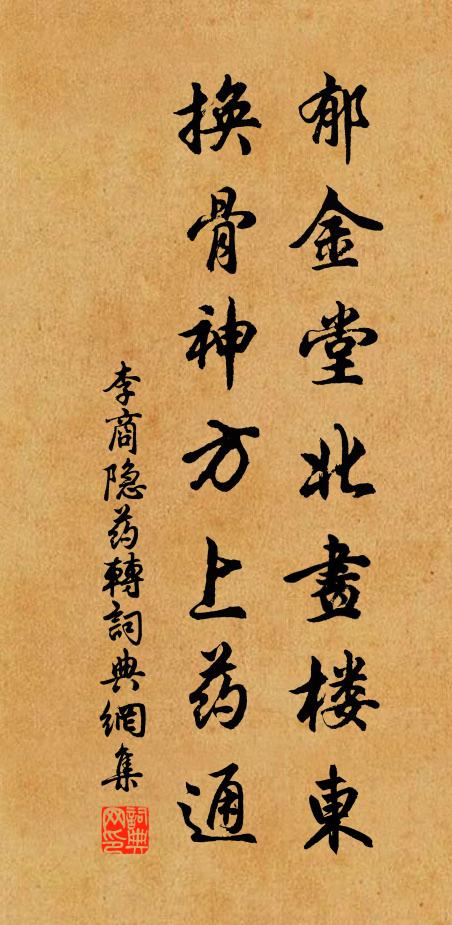 郁金堂北畫楼東
换骨神方上药通
李商隐药轉詞典網集
詞典网印